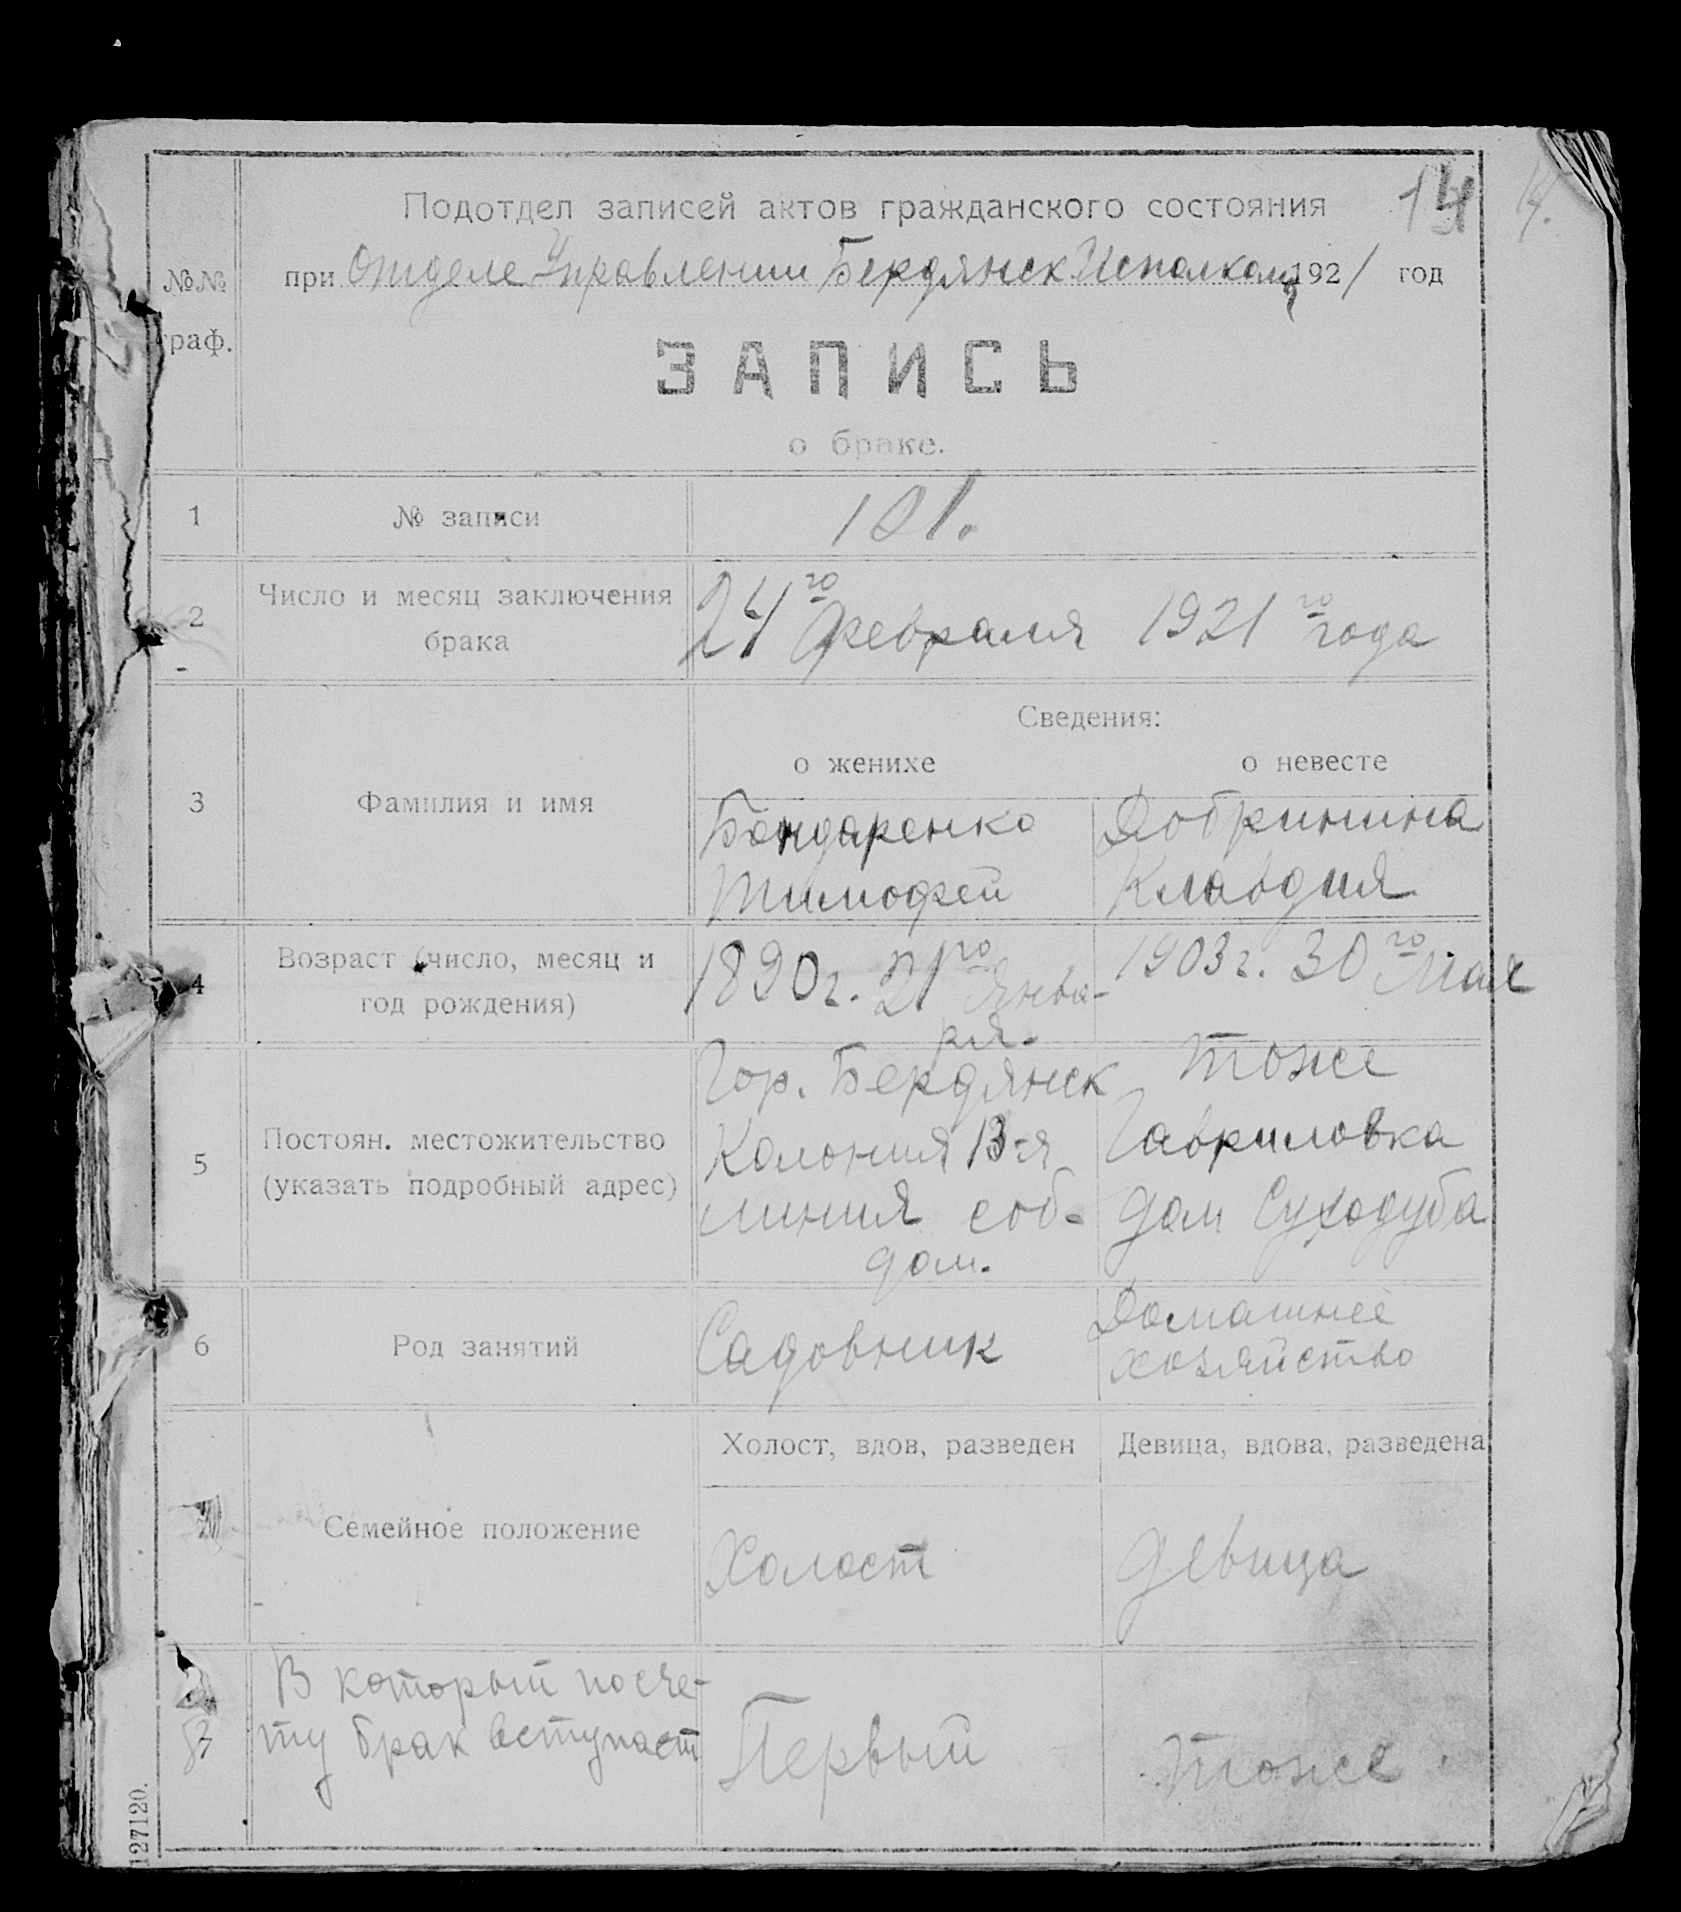 Подотдел записей актов гражданского состояния 14 14.
№№ граф.
при Отделе Управлении Бердянск Исполкома 1921 год
ЗАПИСЬ
о браке.
1 № записи 101.
2 Число и месяц заключения
брака
24го февраля 1921го года
Сведения:
о женихе о невесте
3 Фамилия и имя
Бондаренко Добринина
Тимофей Клавдия
4 Возраст (число, месяц и
год рождения)
1890г. 21го Янва- 1903г. 30го Мая
ря.
5 Постоян. местожительство
(указать подробный адрес)
Гор. Бердянск тоже
Колония 13-я Гавриловка
линия соб. дом Суходуба
дом.
6 Род занятий
Садовник Домашнее
хозяйство
Холост, вдов, разведен Девица, вдова, разведена
Семейное положение
Холост девица
В который по сче-
ту брак вступает
Первый тоже
127120.